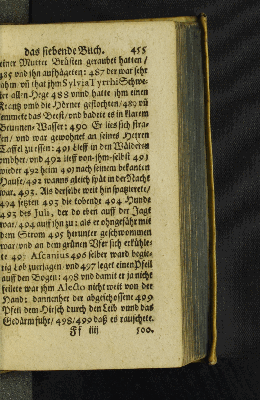 das siebende Buch. 455
einer Mutter Brüsten geraubet hatten /
485 vnd ihn auffzügeten: 487 der war sehr
zahm / vñ that jhm Sylvia Tyrrhi Schwe-
ster allen Hege 488 vnnd hatte ihm einen
Krantz vmb die Hörner geflochten / 489 vñ
kemmete das Beest / vnd badete es in klarem
Brunnen-Wasser: 490 Er lies sich strä-
len / vnd war gewohnet an seines Herren
Taffel zu essen: 491 Lieff in den Wälderen
vmbher / vnd 492 lieff von-ihm-selbst 491
wieder 492 heim 491 nach seinem bekanten
Hause / 492 wanns gleich spät in der Nacht
war. 493. Als derselbe weit hin spatzierete /
494 setzten 493 die tobende 494 Hunde
493 des Juli, der do eben auff der Jagt
war / 494 auff ihn zu: als er ohngefähr mit
dem Strom 495 herunter geschwommen
war / vnd an dem grünen Vfer sich erkühle-
te 497 Ascanius 496 selber ward begie-
rig Lob zuerjagen / vnd 497 leget einen Pfeil
auff den Bogen: 498 vnd damit er ja nicht
feilete war jhm Alecto nicht weit von der
Hand: dannenher der abgeschossene 499
Pfeil dem Hirsch durch den Leib vnnd das
Gedärm fuhr / 498/499 daß es rauschete.
Ff iiij 500.